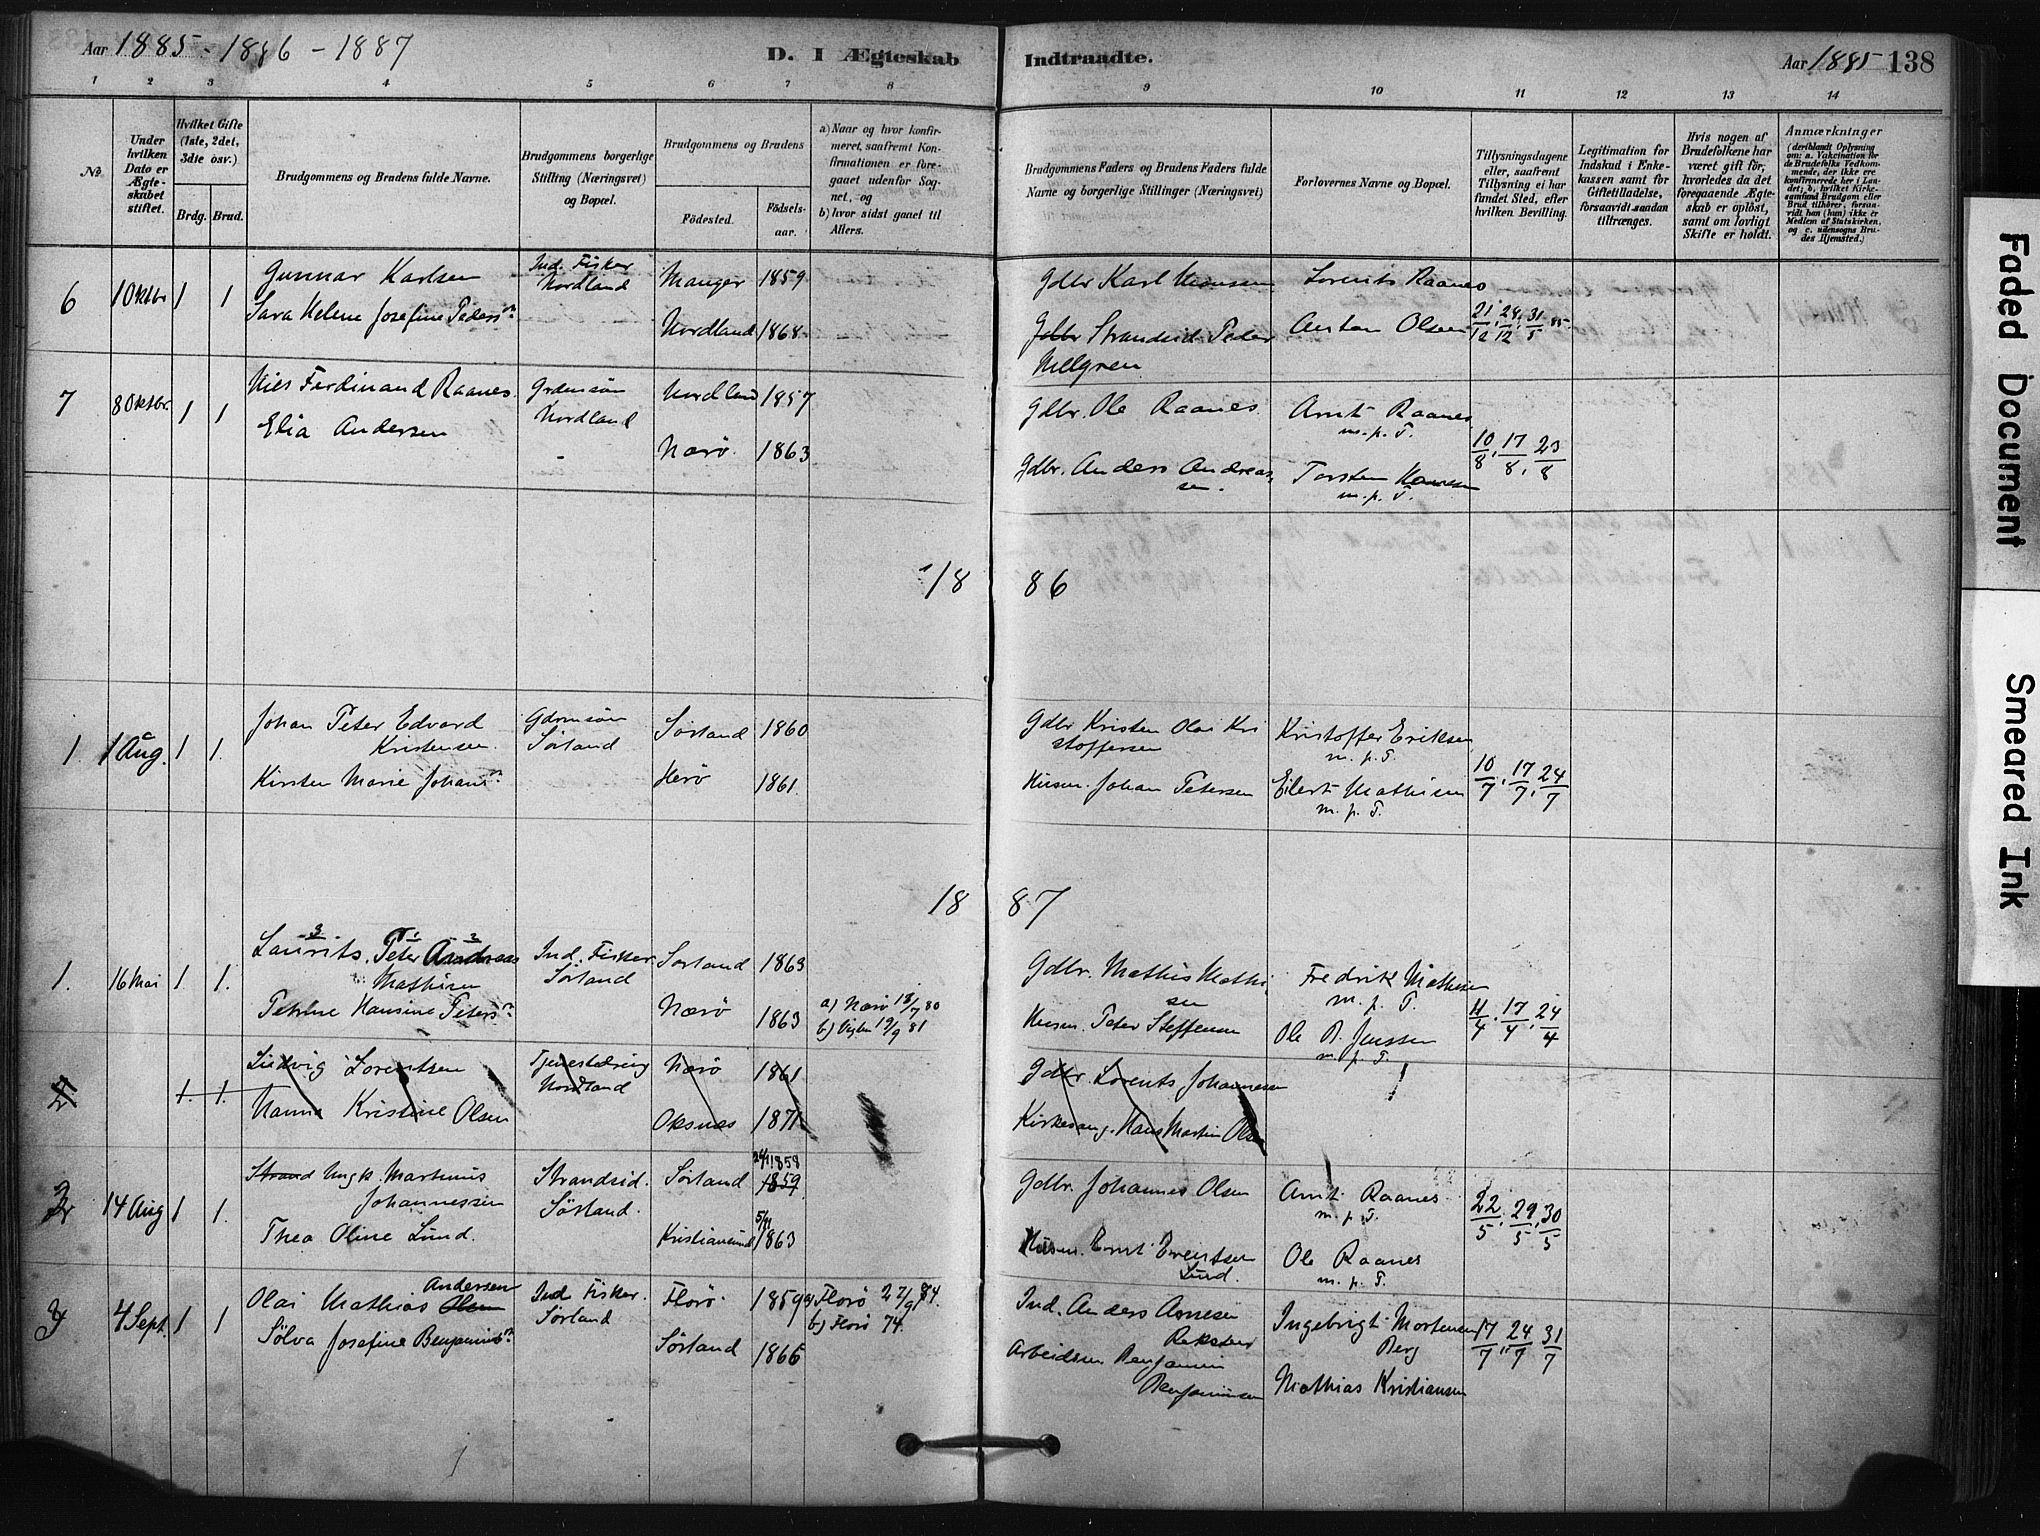 Aar 1885 - 1886 - 1887
D. I Ægteskab Indtraadte.
Aar 1885 138
1 2 3 4 5 6 7 8 9 10 11 12 13 14
No
Under hvilken Dato er Ægteskabet stiftet.
Hvilket Gifte (1ste, 2det, 3die osv.)
Brdg. Brud.
Brudgommens og Brudens fulde Navne.
Brudgommens borgerlige Stilling (Næringsvei) og Bopæl.
Brudgommens og Brudens
Fødested.
Fødselsaar.
a) Naar og hvor konfirmeret, saafremt Konfirmationen er foregaaet udenfor Sognet, og
b) hvor sidst gaaet til Alters.
Brudgommens Faders og Brudens Faders fulde Navne og borgerlige Stillinger (Næringsvei)
Forlovernes Navne og Bopæl.
Tillysningsdagene eller, saafremt Tillysning ei har fundet Sted, efter hvilken Bevilling.
Legitimation for Indskud i Enkekassen samt for Giftetilladelse, forsaavidt saadan tiltrænges.
Hvis nogen af Brudefolkene har været gift før, hvorledes da det foregaaende Ægteskab er opløst, samt om lovligt Skifte er holdt.
Anmærkninger (deriblandt Oplysning om: a. Vakcination for de Brudefolks Vedkommende, der ikke ere konfirmerede her i Landet; b. hvilket Kirkesamfund Brudgom eller Brud tilhører, forsaavidt han (hun) ikke er Medlem af Statskirken, og c. udensogns Brudes Hjemsted.)
6 1 Oktbr 1 1 Gunnar Karlsen Ind. Fisker Nordland Manger 1859 Gdbr Karl Monssen Lorents Raanes
Sara Helene Josefine Peders n Nordland 1868 Gdbr Strandsid Peder Anton Olsen 21/12, 28/12, 31/5 85
Hellgren
7 8 Oktbr. 1 1 Nils Ferdinand Raanes Grdmsøn Nordland Nordland 1857 Gdbr. Ole Raanes Arnt Raanes m.p.T. 10/8, 17/8, 23/8
Elia Andersen - Nærø. 1863 Gdbr. Anders Andreassen. Torsten Hansen m.p.T.
18 86
1 1 Aug. 1 1. Johan Peter Edvard Kristensen Gdmsøn Sørland Sørland 1860 Gdbr Kristen Olai Kristoffersen Kristoffer Eriksen m.p.T. 10/7, 17/7, 24/7
Kirsten Marie Johans n Herø 1861 Husm. Johan Petersen Eilert Mathisen m.p.T.
18 87
1. 16 Mai 1. 1. Laurits Peter Andreas Mathisen Ind. Fisker Sørland Sørland 1863 Gdbr. Mathis Mathisen Fredrik Mathisen m.p.T. 11/4, 17/4, 24/4
Petrine Hansine Peters n Nærø 1863 a) Nærø 18/7 80 b) Vigten 19/9 81 Husm. Peter Steffensen Ole B. Jenssen m.p.T.
2 1. 1. Ludvig Lorentsen Tjenestedreng Nordland Nærø 1861 Gdbr. Lorents Johannesen
Hanna Kristine Olsen Øksnæs 1871 Kirkesang. Hans Martin Olsen
2 14 Aug 1 1. Strand Ungk. Martinus Johannessen Strandsid. Sørland. Sørland 24/1 1858 1859 Gdbr. Johannes Olsen Arnt Raanes m.p.T. 22/5, 29/5, 30/5
Thea Oline Lund. Kristiansund 5/11 1863 Husm. Ernt Erentsen Lund. Ole Raanes m.p.T.
3 4 Sept. 1 1 Olai Mathias Olsen Andersen Ind Fisker. Sørland Florø 1859 a) Florø 22/9 84. b) Florø 74. Ind. Anders Arnesen Reksten Ingebrigt Mortensen Berg 17/7, 24/7, 31/7
Sølva Josefine Benjamins n Sørland 1866 Arbeidsm. Benjamin Benjaminsen Mathias Kristiansen
Faded Document
Smeared Ink